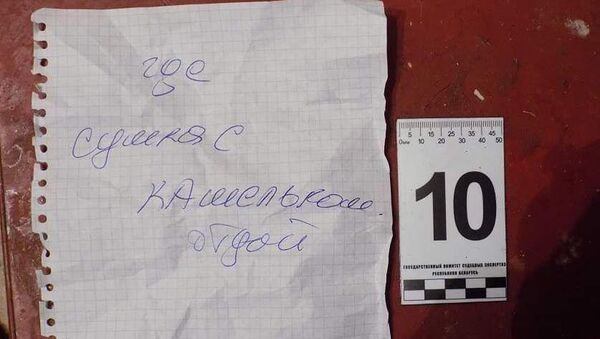 где
сумка с
кашельком.
отдай
5 15 25 35 45
0мм 10 20 30 40 50
10
ГОСУДАРСТВЕННЫЙ КОМИТЕТ СУДЕБНЫХ ЭКСПЕРТИЗ
РЕСПУБЛИКИ БЕЛАРУСЬ